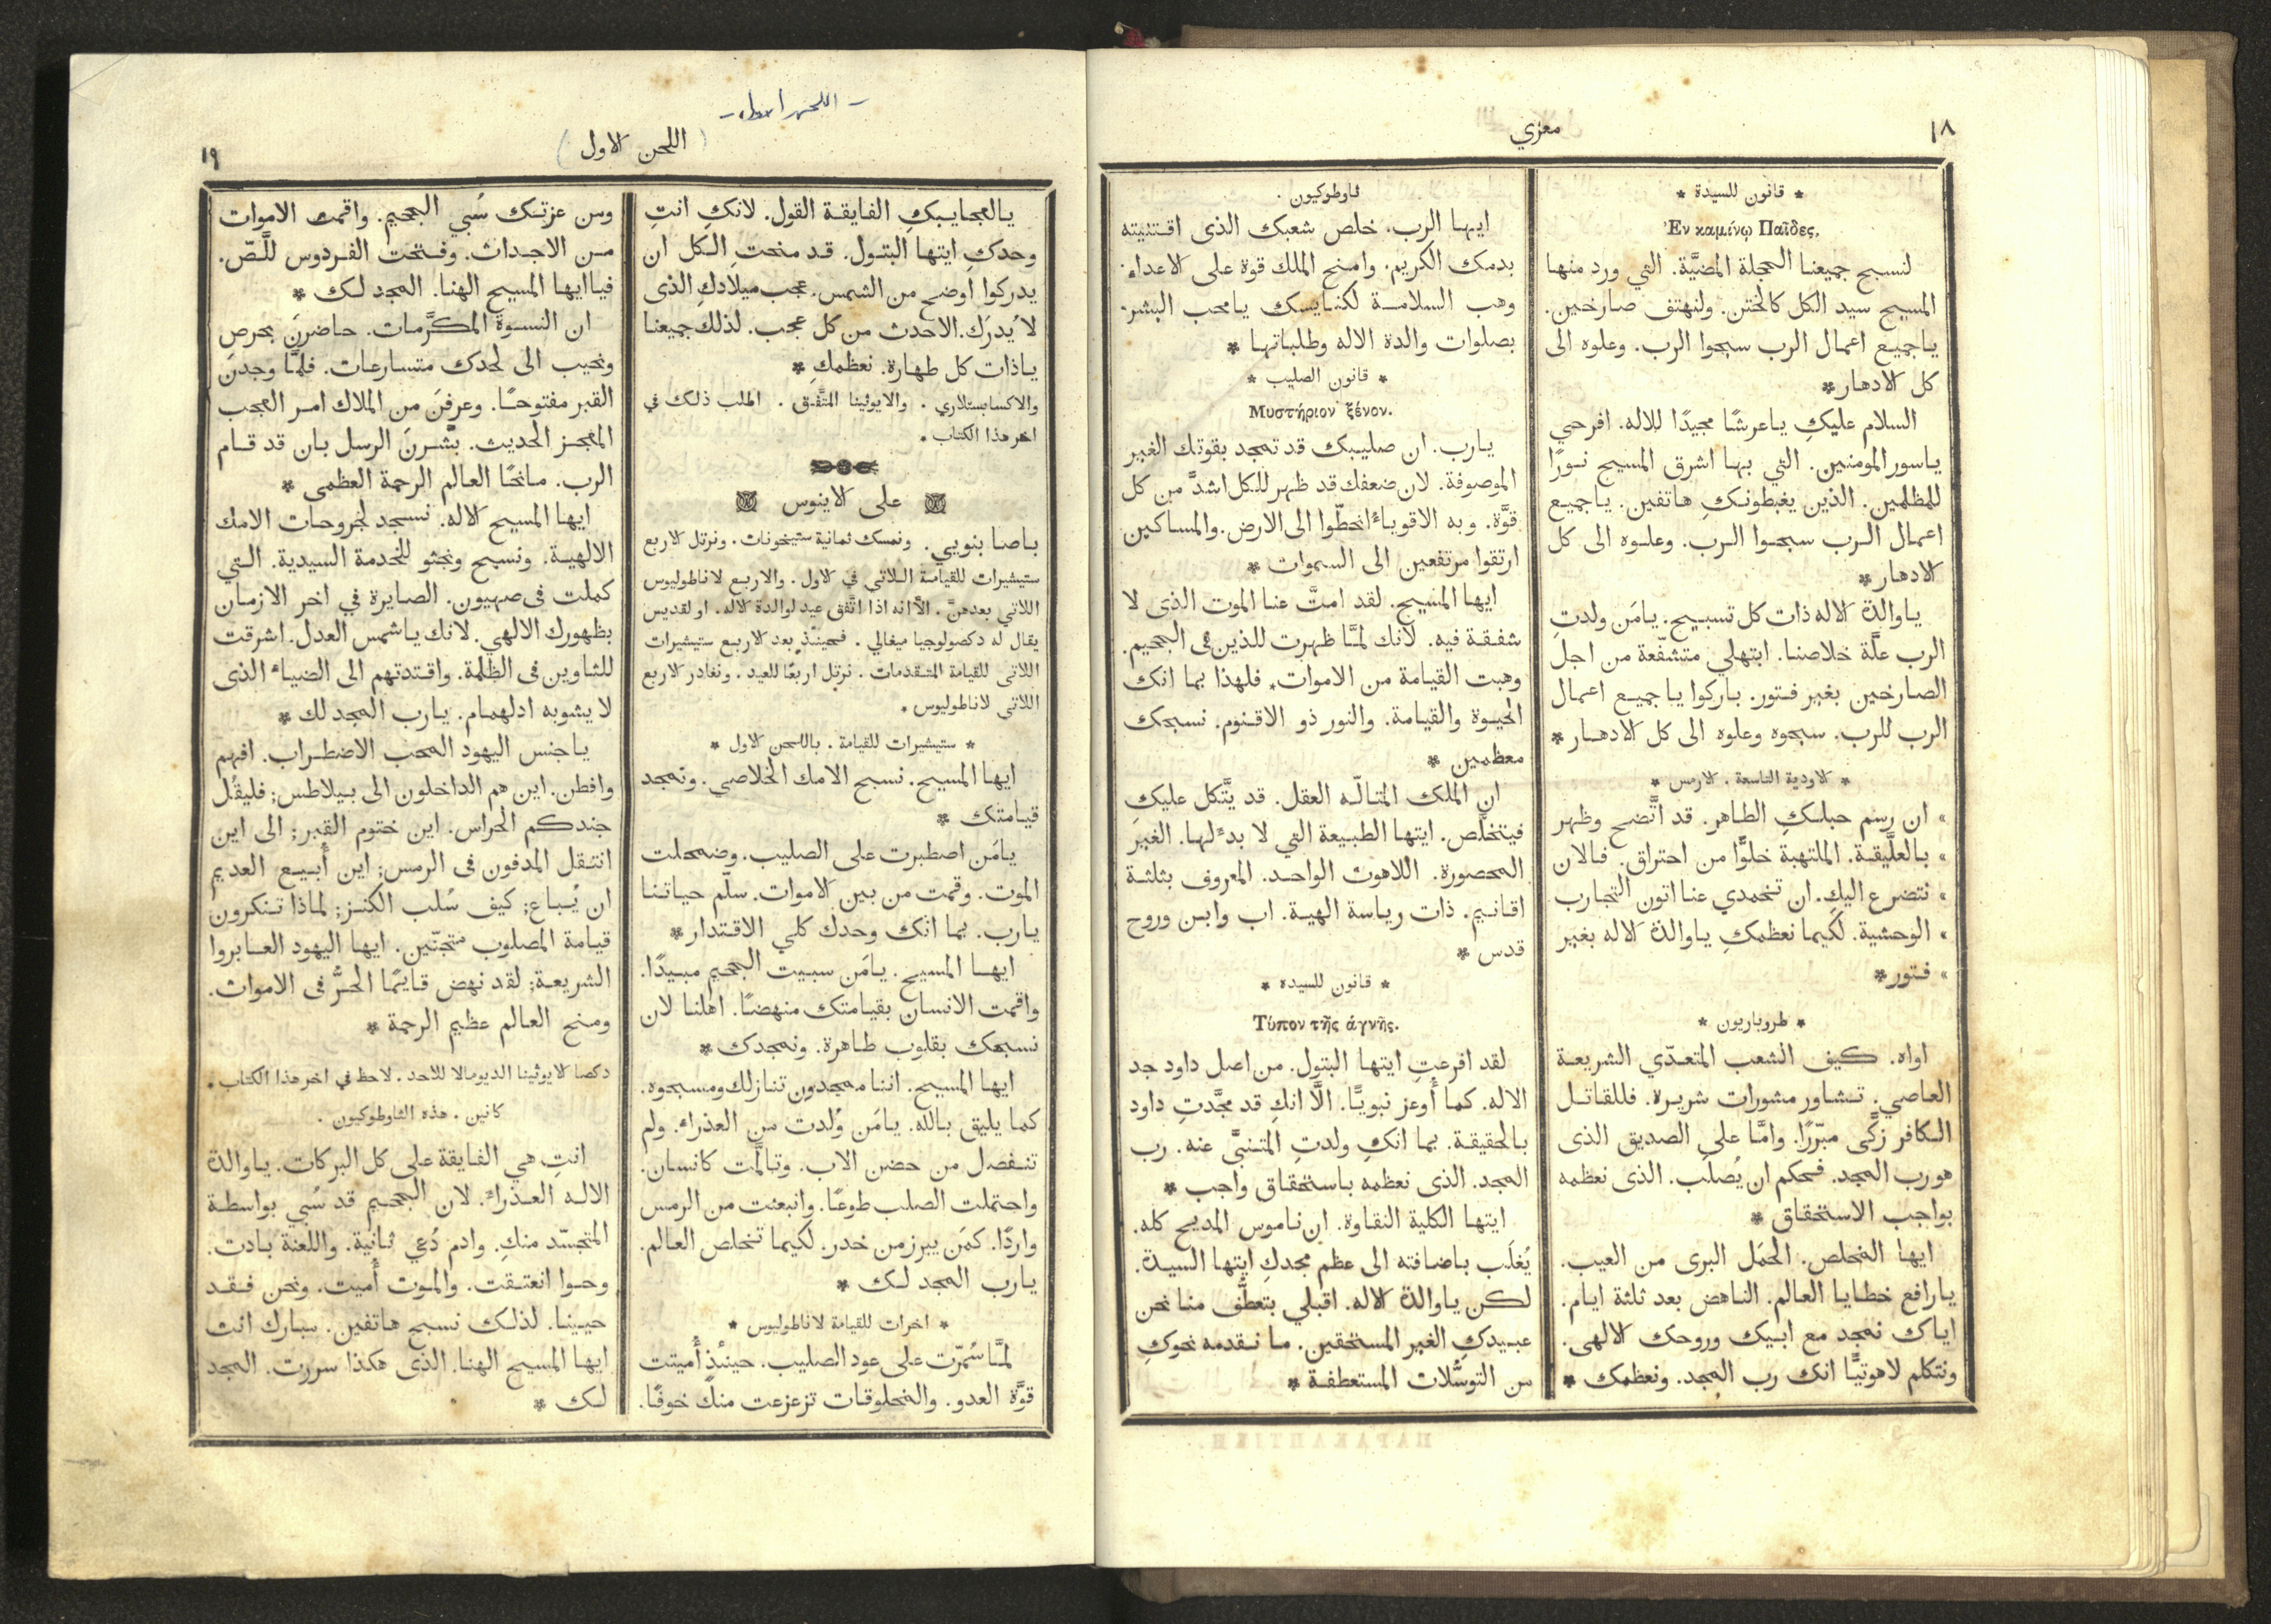 ١٨
معزي
* قانون للسيدة *
Ἐν καμίνῳ Παῖδες.
لنسبح جميعنا الحجلة المضيَّة. التي ورد منها
المسيح سيد الكل كالختن. ولنهتف صارخين.
ياجميع اعمال الرب سبحوا الرب. وعلوه الى
كل الادهار *
السلام عليكِ ياعرشًا مجيدًا للاله. افرحي
ياسور المومنين. التي بها اشرق المسيح نورًا
للمظلمين. الذين يغبطونكِ هاتفين. ياجميع
اعمال الرب سبحوا الرب. وعلوه الى كل
الادهار *
ياوالدة الاله ذات كل تسبيح. يامَن ولدتِ
الرب علَّة خلاصنا. ابتهلي متشفّعة من اجل
الصارخين بغير فتور. باركوا ياجميع اعمال
الرب للرب. سبحوه وعلوه الى كل الادهار *
* الاودية التاسعة . الارمس *
» ان رسم حبلكِ الطاهر. قد اتَّضح وظهر
» بالعلَّيقة. الملتهبة خلوًّا من احتراق. فالان
» نتضرع اليكِ. ان تخمدي عنا اتون التجارب
» الوحشية. لكيما نعظمكِ ياوالدة الاله بغير
» فتور *
* طروباريون *
اواه. كيف الشعب المتعدّي الشريعة
العاصي. تشاور مشورات شريرة. فللقاتل
الكافر زكَّى مبرّرًا. وامَّا على الصديق الذى
هورب المجد. فحكم ان يُصلَب. الذى نعظمه
بواجب الاستحقاق *
ايها المخلص. الحمَل البرى من العيب.
يارافع خطايا العالم. الناهض بعد ثلثة ايام.
اياك نمجد مع ابيك وروحك الالهى.
ونتكلم لاهوتيًّا انك رب المجد. ونعظمك *
ثاوطوكيون .
ايها الرب. خلص شعبك الذى اقتنيته
بدمك الكريم. وامنح الملك قوة على الاعداء.
وهب السلامة لكنايسك يامحب البشر.
بصلوات والدة الاله وطلباتها *
* قانون الصليب *
Μυστήριον ξένον.
يارب. ان صليبك قد تمجد بقوتك الغير
الموصوفة. لان ضعفك قد ظهر للكل اشدَّ من كل
قوَّة. وبه الاقوياءُ انحطّوا الى الارض. والمساكين
ارتقوا مرتفعين الى السموات *
ايها المسيح. لقد امتَّ عنا الموت الذى لا
شفقة فيه. لانك لمَّا ظهرت للذين فى الجحيم.
وهبت القيامة من الاموات. فلهذا بما انك
الحيوة والقيامة. والنور ذو الاقنوم. نسبحك
معظمين *
ان الملك المتالّه العقل. قد يتَّكل عليكِ
فيتخلَّص. ايتها الطبيعة التي لا بدءَ لها. الغير
المحصورة. اللاهوث الواحد. المعروف بثلثة
اقانيم. ذات رياسة الهية. اب وابن وروح
قدس *
* قانون للسيدة *
Τύπον τῆς ἁγνῆς.
لقد افرعتِ ايتها البتول. من اصل داود جد
الاله. كما أُوعز نبويًّا. الَّا انكِ قد مجَّدتِ داود
بالحقيقة. بما انكِ ولدتِ المتنبَّى عنه. رب
المجد. الذى نعظمه باستحقاق واجب *
ايتها الكلية النقاوة. ان ناموس المديح كله.
يُغلَب باضافته الى عظم مجدكِ ايتها السيدة.
لكن ياوالدة الاله. اقبلي بتعطُّف منا نحن
عبيدكِ الغير المستحقين. ما نقدمه نحوكِ
من التوسُّلات المستعطفة *
(اللحن الاول)
١٩
يالعجايبكِ الفايقة القول. لانكِ انتِ
وحدكِ ايتها البتول. قد منحتِ الكل ان
يدركوا اوضح من الشمس. عجب ميلادكِ الذى
لا يُدرَك. الاحدث من كل عجب. لذلك جميعنا
ياذات كل طهارة. نعظمكِ *
والاكسابستلاري . والايوثينا المتَّفق . اطلب ذلك في
اخر هذا الكتاب .
على الاينوس
باصا بنويي. ونمسك ثمانية ستيخونات. ونرتل الاربع
ستيشيرات للقيامة اللاتي في الاول. والاربع الاناطوليوس
اللاتي بعدهنَّ. الَّا انه اذا اتَّفق عيد لوالدة الاله. او لقديس
يقال له دكصولوجيا ميغالي. فحينئذٍ بعد الاربع ستيشيرات
اللاتى للقيامة المتقدمات. نرتل اربعًا للعيد. ونغادر الاربع
اللاتى لاناطوليوس .
* ستيشيرات للقيامة . باللحن الاول *
ايها المسيح. نسبح الامك الخلاصي. ونمجد
قيامتك *
يامَن اصطبرت على الصليب. وضمحلت
الموت. وقمت من بين الاموات. سلّم حياتنا
يارب. بما انك وحدك كلي الاقتدار *
ايها المسيح. يامَن سبيت الجحيم مبيدًا.
واقمت الانسان بقيامتك منهضًا. اهلنا لان
نسبحك بقلوب طاهرة. ونمجدك *
ايها المسيح. اننا ممجدون تنازلك ومسبحوه.
كما يليق بالله. يامَن وُلدت من العذراء. ولم
تنفصل من حضن الاب. وتالَّمت كانسان.
واحتملت الصلب طوعًا. وانبعثت من الرمس
واردًا. كمَن يبرز من خدر. لكيما تخلص العالم.
يارب المجد لك *
* اخرات للقيامة لاناطوليوس *
لمَّا سُمّرت على عود الصليب. حينئذٍ أُميتت
قوَّة العدو. والمخلوقات تزعزعت منك خوفًا.
ومن عزتك سُبي الجحيم. واقمت الاموات
من الاجداث. وفتحت الفردوس للَّصّ.
فياايها المسيح الهنا. المجد لك *
ان النسوة المكرَّمات. حاضرنَ بحرص
ونحيب الى لحدك متسارعات. فلمَّا وجدنَ
القبر مفتوحًا. وعرفنَ من الملاك امر العجب
المعجز الحديث. بشَّرنَ الرسل بان قد قام
الرب. مانحًا العالم الرحمة العظمى *
ايها المسيح الاله. نسجد لجروحات الامك
الالهية. ونسبح ونجثو للخدمة السيدية. التي
كملت فى صهيون. الصايرة في اخر الازمان
بظهورك الالهي. لانك ياشمس العدل. اشرقت
للثاوين فى الظلمة. واقتدتهم الى الضياءِ الذى
لا يشوبه ادلهمام. يارب المجد لك *
ياجنس اليهود المحب الاضطراب. افهم
وافطن. اين هم الداخلون الى بيلاطس; فليقُل
جندكم الحراس. اين ختوم القبر; الى اين
انتقل المدفون فى الرمس; اين أُبيع العديم
ان يُباع; كيف سُلب الكنز; لماذا تنكرون
قيامة المصلوب متجنّين. ايها اليهود العابروا
الشريعة; لقد نهض قايمًا الحُرُّ فى الاموات.
ومنح العالم عظيم الرحمة *
دكصا الايوثينا الديومالا للاحد. لاحظ في اخر هذا الكتاب .
كانين . هذه الثاوطوكيون .
انتِ هي الفايقة على كل البركات. ياوالدة
الاله العذراءُ. لان الجحيم قد سُبي بواسطة
المتجسّد منكِ. وادم دُعي ثانية. واللعنة بادت.
وحوا انعتقت. والموت أُميت. ونحن فقد
حيينا. لذلك نسبح هاتفين. مبارك انت
ايها المسيح الهنا. الذى هكذا سررت. المجد
لك *